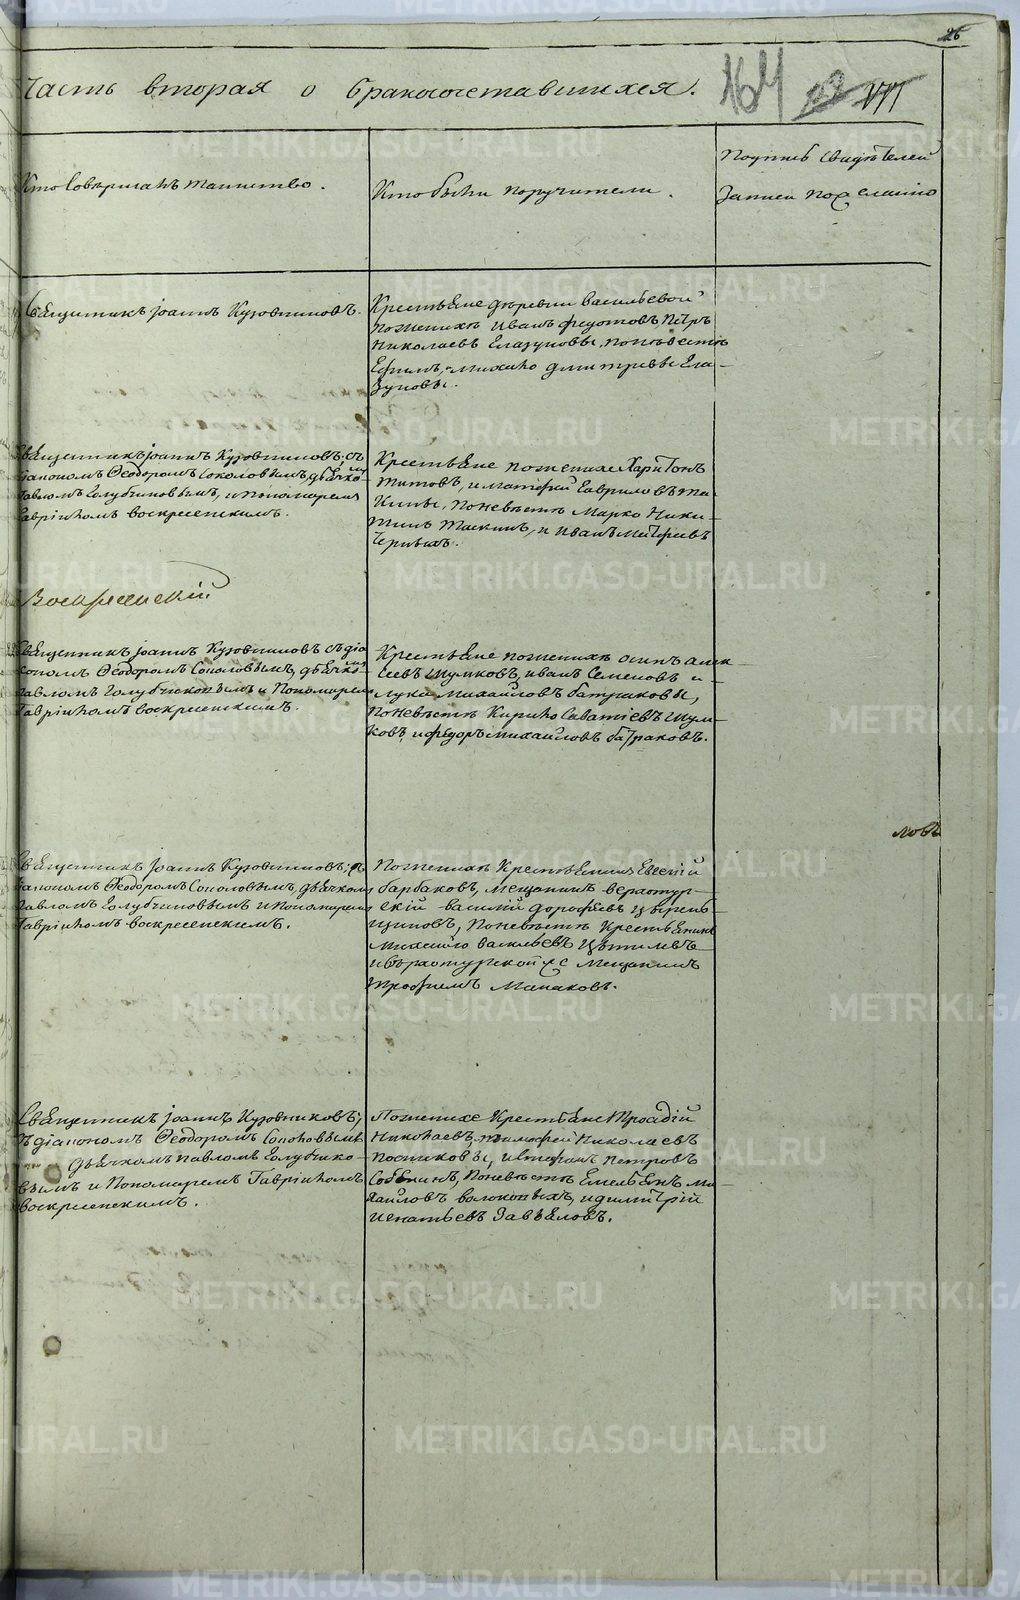 26
Часть вторая о бракосочетавшихся.
164
Кто Совершалъ таинство.
Кто были поручители.
Подпись свидѣтелей
Записи по желанію
Священникъ Іоаннъ Кузовниковъ.
Крестьяне деревни Васильевой
по женихѣ Иванъ Федотовъ, Петръ
Николаевъ Глазуновы, по невѣстѣ
Ефимъ, Михайло Дмитревы Гла-
зуновы.
Священникъ Іоаннъ Кузовниковъ, съ
діакономъ Ѳеодоромъ Соколовымъ, дьячкомъ
Павломъ Голубчиковымъ, и Пономаремъ
Гавріиломъ Воскресенскимъ.
Крестьяне по женихе Харитонъ
Титовъ, и Матфей Гавриловъ Та-
кины, по невѣстѣ Марко Ники-
тинъ Таскинъ, и Иванъ Матфеевъ
Черныхъ.
Воскресенскій
Священникъ Іоаннъ Кузовниковъ съ діа
кономъ Ѳеодоромъ Соколовымъ, дьячкомъ
Павломъ Голубчиковымъ и Пономаремъ
Гавріиломъ Воскресенскимъ.
Крестьяне по женихѣ Осипъ Алек
сеевъ Шумковъ, Иванъ Семеновъ и
Лука Михайловъ Батраковы,
по невѣстѣ Кирило Саватіевъ Шум-
ковъ и Федоръ Михайловъ Батраковъ.
ловъ
Священникъ Іоаннъ Кузовниковъ, съ
діакономъ Ѳеодоромъ Соколовымъ, дьячкомъ
Павломъ Голубчиковымъ и Пономаремъ
Гавріиломъ Воскресенскимъ.
По женихѣ Крестьянинъ Евсегій
Барбаковъ, Мещанинъ Верхотур-
скій Василій Дорофеевъ
по невѣстѣ Крестьянинъ
Михайло Васильевъ
и Верхотурской Мещанинъ
Трофимъ Манаковъ.
Священникъ Іоаннъ Кузовниковъ,
съ діакономъ Ѳеодоромъ Соколовымъ
дьячкомъ Павломъ Голубчико-
вымъ и Пономаремъ Гавріиломъ
Воскресенскимъ.
По женихе Крестьяне Троадій
Николаевъ, Тимофей Николаевъ
Постниковы, и Стефанъ Петровъ
Собенинъ, по невѣстѣ Емельянъ Ми-
хайловъ Волоковыхъ, и Димитрій
Игнатьевъ Завьяловъ.
METRIKI.GASO-URAL.RU